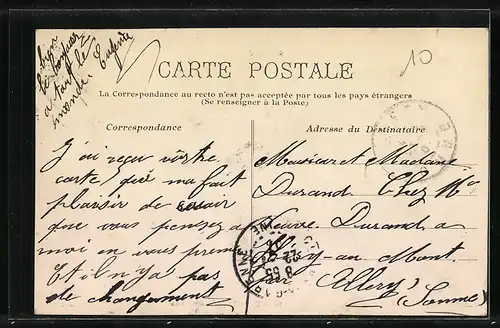 bien
le bonjour
a tout le
monde Eugénie
10
CARTE POSTALE
La Correspondance au recto n'est pas acceptée par tous les pays étrangers
(Se renseigner à la Poste)
Correspondance
J'ai reçu vôtre
carte, qui ma fait
plaisir de savoir
que vous pensez a
moi en vous
Et il n'y a pas
de changement
Adresse du Destinataire
Monsieur et Madame
Durand Chez Me
Veuve Durand a
au Mont
Allery (Somme)